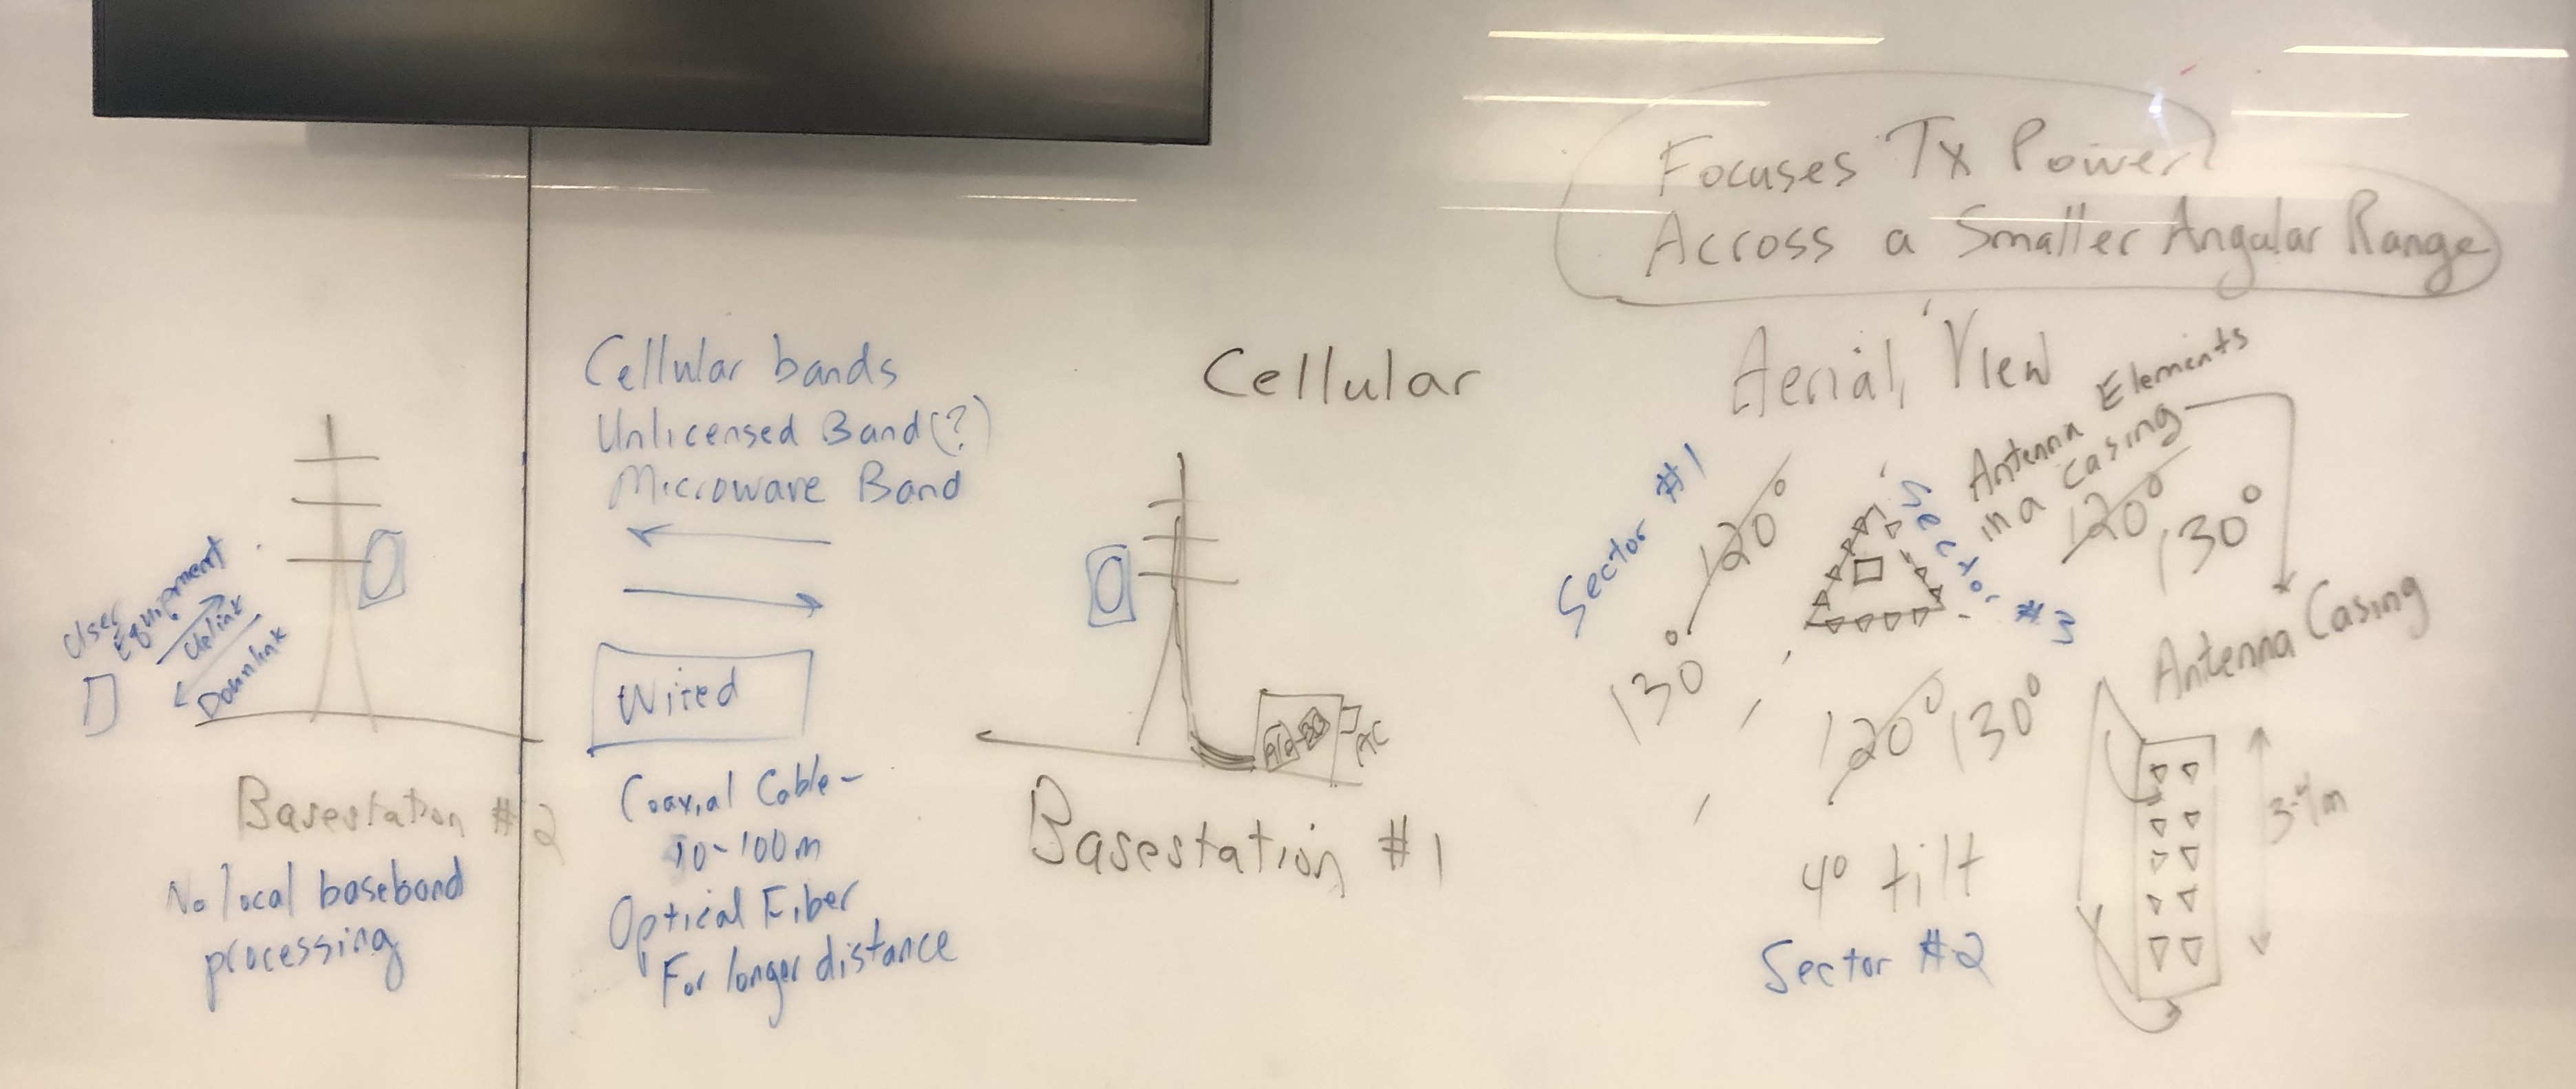 Focuses Tx Power
Across a Smaller Angular Range
Cellular bands
Unlicensed Band(?)
Microwave Band
Wired
Coaxial Cable-
10-100m
Optical Fiber
For longer distance
User
Equipment
Uplink
Downlink
Basestation #2
No local baseband
processing
Cellular
AC
Basestation #1
Aerial View
Antenna Elements
in a casing
Sector #1
120°
130°
Sector #3
120°
130°
120°
130°
4° tilt
Sector #2
Antenna Casing
3-4m